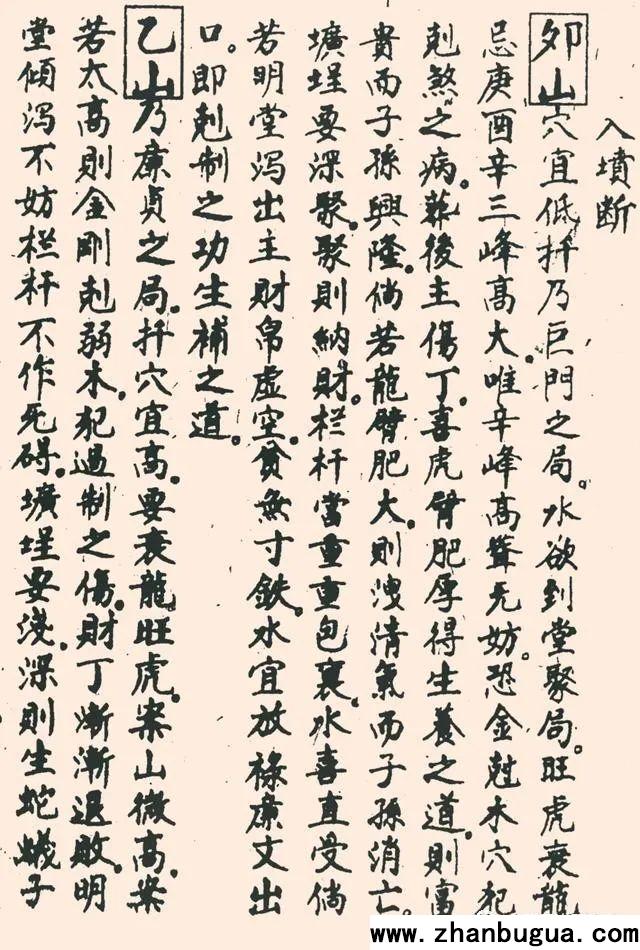 入墳断
卯山穴宜低扦乃巨門之局。水欲到堂聚局。旺虎衰龍
忌庚酉辛三峰高大。唯辛峰高聳无妨。恐金尅木穴犯
剋煞之病。葬後主傷丁。喜虎臂肥厚得生養之道。則富
貴而子孫興隆。倘若龍臂肥大。則洩清氣而子孫消亡。
壙埕要深聚。聚則納財。栏杆當重重包裹。水喜直受倘
若明堂瀉出主財帛虛空。貧無寸鉄。水宜放祿廉文出
口。即剋制之功生補之道。
乙山乃廉貞之局。扦穴宜高。要衰龍旺虎。案山微高。案
若太高則金剛剋弱木。犯過制之傷。財丁漸漸退敗。明
堂傾瀉不妨栏杆不作无碍。壙埕要淺。深則生蛇蟻子
www.zhanbugua.com